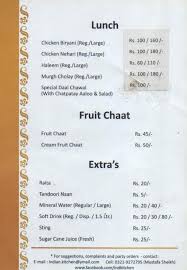 Lunch
Chicken Biryani (Reg./Large) Rs. 100 / 160 /-
Chicken Nehari (Reg./Large) Rs. 100 / 180 /-
Haleem (Reg./Large) Rs. 100 / 150 /-
Murgh Cholay (Reg./Large) Rs. 100 / 150 /-
Special Daal Chawal Rs. 100/-
(With Chatpatay Aaloo & Salad)
Fruit Chaat
Fruit Chaat Rs. 45/-
Cream Fruit Chaat Rs. 50/-
Extra's
Raita Rs. 20/-
Tandoori Naan Rs. 5/-
Mineral Water (Regular / Large) Rs. 20 / 40 /-
Soft Drink (Reg. / Disp. / 1.5 Ltr.) Rs. 20 / 30 / 80 /-
Sting Rs. 25/-
Sugar Cane Juice (Fresh) Rs. 20 / 30/-
* For suggestions, complaints and party orders - contact:
Email:
Cell: (Mustafa Sheikh)